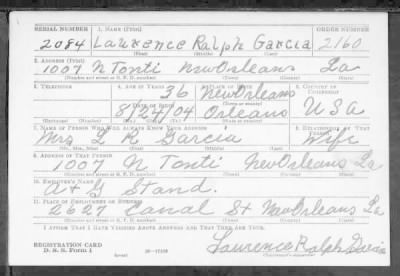 SERIAL NUMBER 1. NAME (Print) ORDER NUMBER
2084 Lawrence Ralph Garcia 2160
(First) (Middle) (Last)
2. ADDRESS (Print)
1007 N Tonti New Orleans La
(Number and street or R. F. D. number) (Town) (County) (State)
3. TELEPHONE 4. AGE IN YEARS 5. PLACE OF BIRTH 6. COUNTRY OF CITIZENSHIP
36 New Orleans
DATE OF BIRTH (Town or county)
8/24/04 Orleans USA
(Exchange) (Number) (Mo.) (Day) (Yr.) (State or country)
7. NAME OF PERSON WHO WILL ALWAYS KNOW YOUR ADDRESS 8. RELATIONSHIP OF THAT PERSON
Mrs L R Garcia Wife
(Mr., Mrs., Miss) (First) (Middle) (Last)
9. ADDRESS OF THAT PERSON
1007 N Tonti New Orleans La
(Number and street or R. F. D. number) (Town) (County) (State)
10. EMPLOYER'S NAME
A & G Stand.
11. PLACE OF EMPLOYMENT OR BUSINESS
2627 Canal St New Orleans La
(Number and street or R. F. D. number) (Town) (County) (State)
I AFFIRM THAT I HAVE VERIFIED ABOVE ANSWERS AND THAT THEY ARE TRUE.
REGISTRATION CARD
D. S. S. Form 1 Lawrence Ralph Garcia